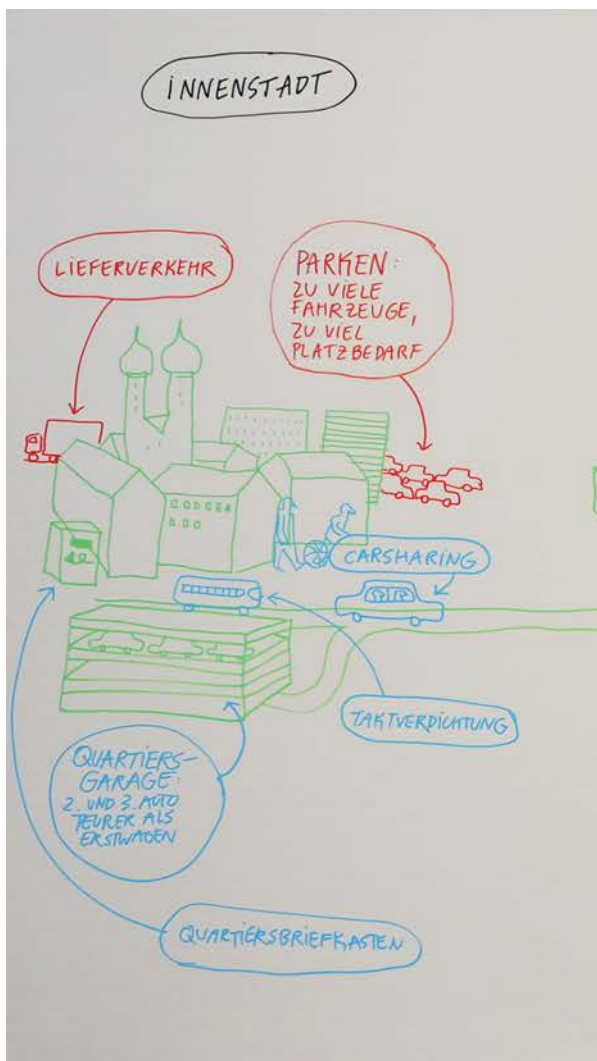 INNENSTADT
LIEFERVERKEHR
PARKEN:
ZU VIELE
FAHRZEUGE,
ZU VIEL
PLATZBEDARF
CARSHARING
TAKTVERDICHTUNG
QUARTIERS-
GARAGE:
2. UND 3. AUTO
TEURER ALS
ERSTWAGEN
QUARTIERSBRIEFKASTEN